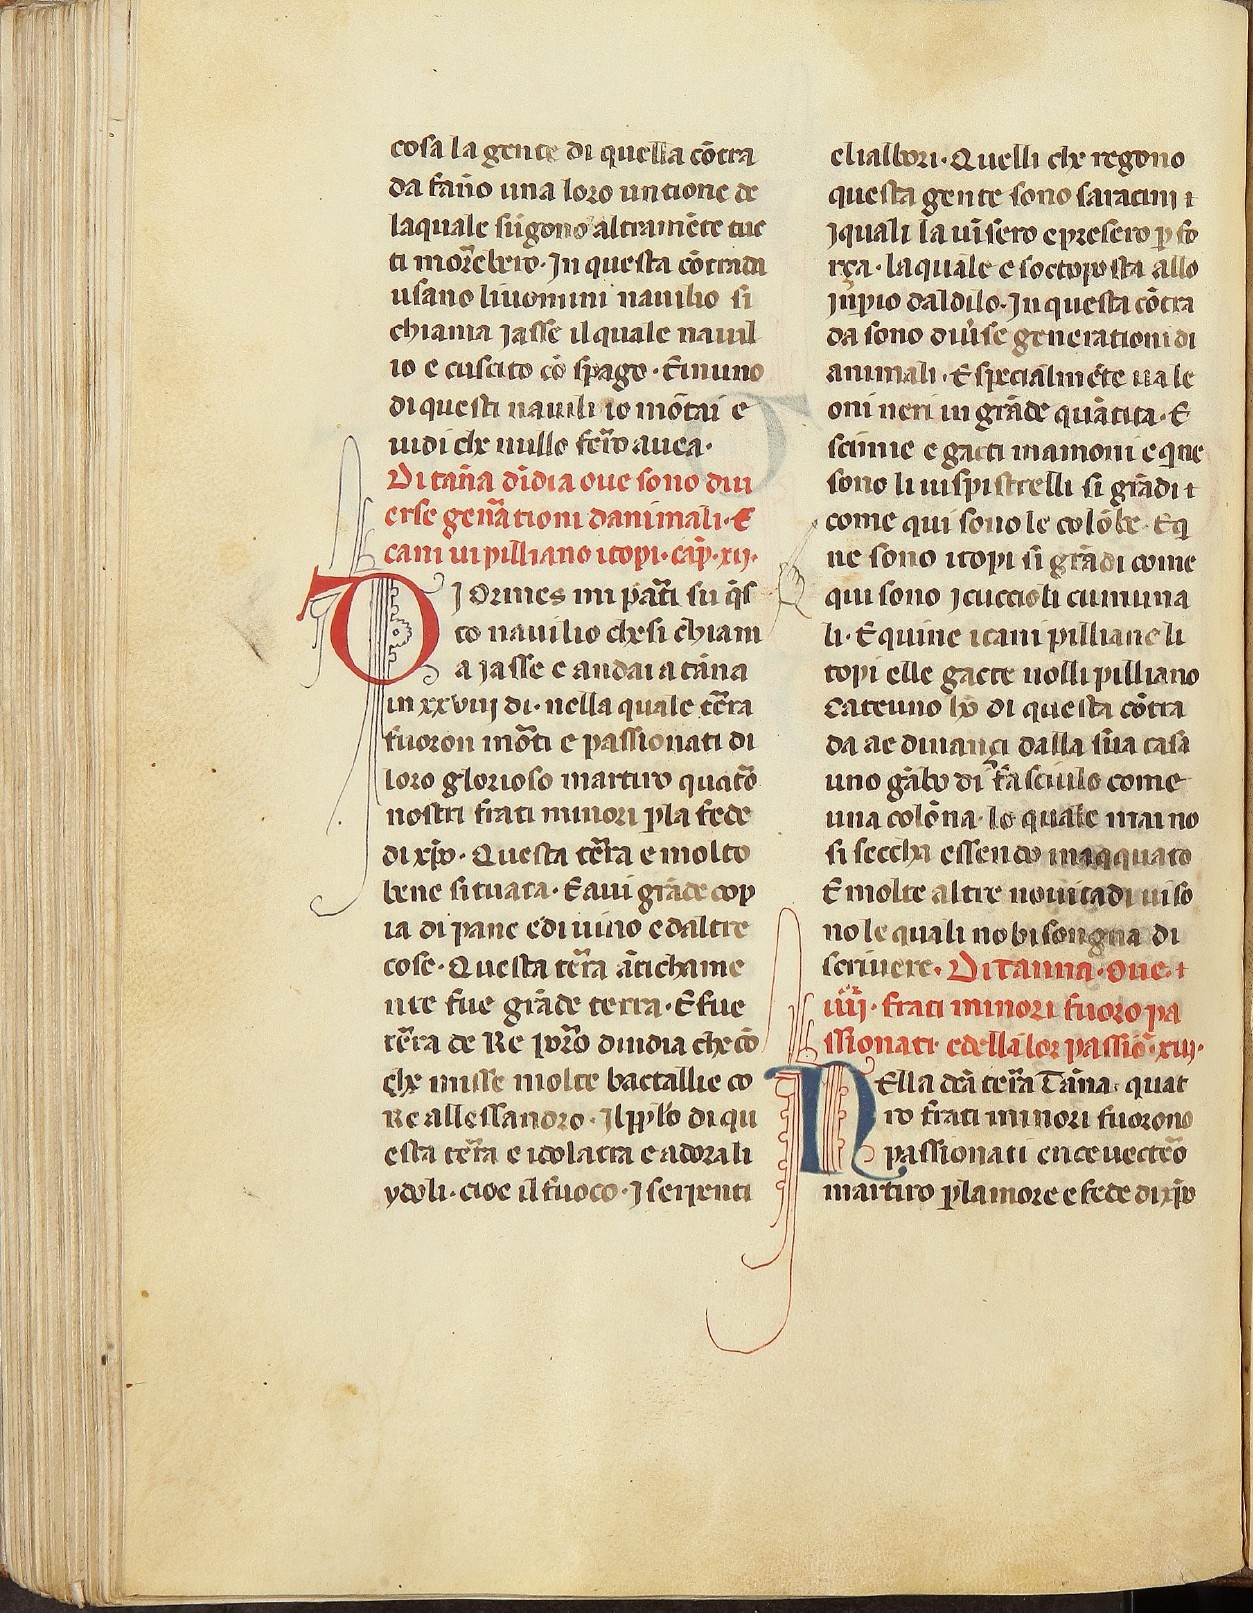 cosa la gente di quella cõtra
da fañо una loro untione de
laquale sũgono altramẽte tuc
ti mor̃ebero. In questa cõtrada
usano liuomini nauilio si
chiama Jasse il quale nauil
io e cuscito cõ spago. Ẽ in uno
di questi nauili io mõtai e
uidi che nullo fer̃o auea.
Di tañа dĩdia oue sono diu
erse gen̄ationi danimali. E
cani ui pilliano i topi. cap̃. xij.
DJ Ormes mi par̃ti su q̃s
to nauilio che si chiam
a Jasse e andai a tãna
in xxviij di. nella quale ter̃a
fuoron mõti e passionati di
loro glorioso martiro quatõ
nostri frati minori ꝑ la fede
di xp̃o. Questa ter̃a e molto
bene situata. E aui grãde cop
ia di pane e di uino e daltre
cose. Questa ter̃a ãtichame
nte fue grãde terra. E fue
ter̃a de Re por̃o dindia che cõ
che misse molte bactallie co
Re allessandro. Il ppl̃o di qu
esta ter̃a e idolatra e adora li
ydoli. cioe il fuoco. I serpenti
eli albori. Quelli che regono
questa gente sono saracini ⁊
Iquali la uĩsero e presero ꝑ fo
rça. laquale e soctoposta allo
Iñpio dal dilo. In questa cõtra
da sono diũse generationi di
animali. E spetialmẽte ua le
oni neri in grãde quãtita. E
scimie e gacti mamoni e q̃ ne
sono li uispistrelli si grãdi ⁊
come qui sono le colõbe. E q̃
ne sono i topi si grãdi come
qui sono I cuccioli cumuna
li. E quine i cani pilliano li
topi e lle gacte nolli pilliano
Cateuno hõ di questa cõtra
da ae dinançi dalla sua casa
uno gãbo di fasciulo come
una colõna. lo quale mai no
si seccha essendo inaqquato
E molte altre nouitadi ui so
no le quali no bisongna di
scriuere. Di Tanna. Oue. ⁊
iiij. frati minori fuoro pa
ssionati. e della lor passiõ. xiij.
NElla dc̃a ter̃a Tãna. quat
ro frati minori fuorono
passionati e riceuecterõ
martiro ꝑ lamore e fede di xp̃o